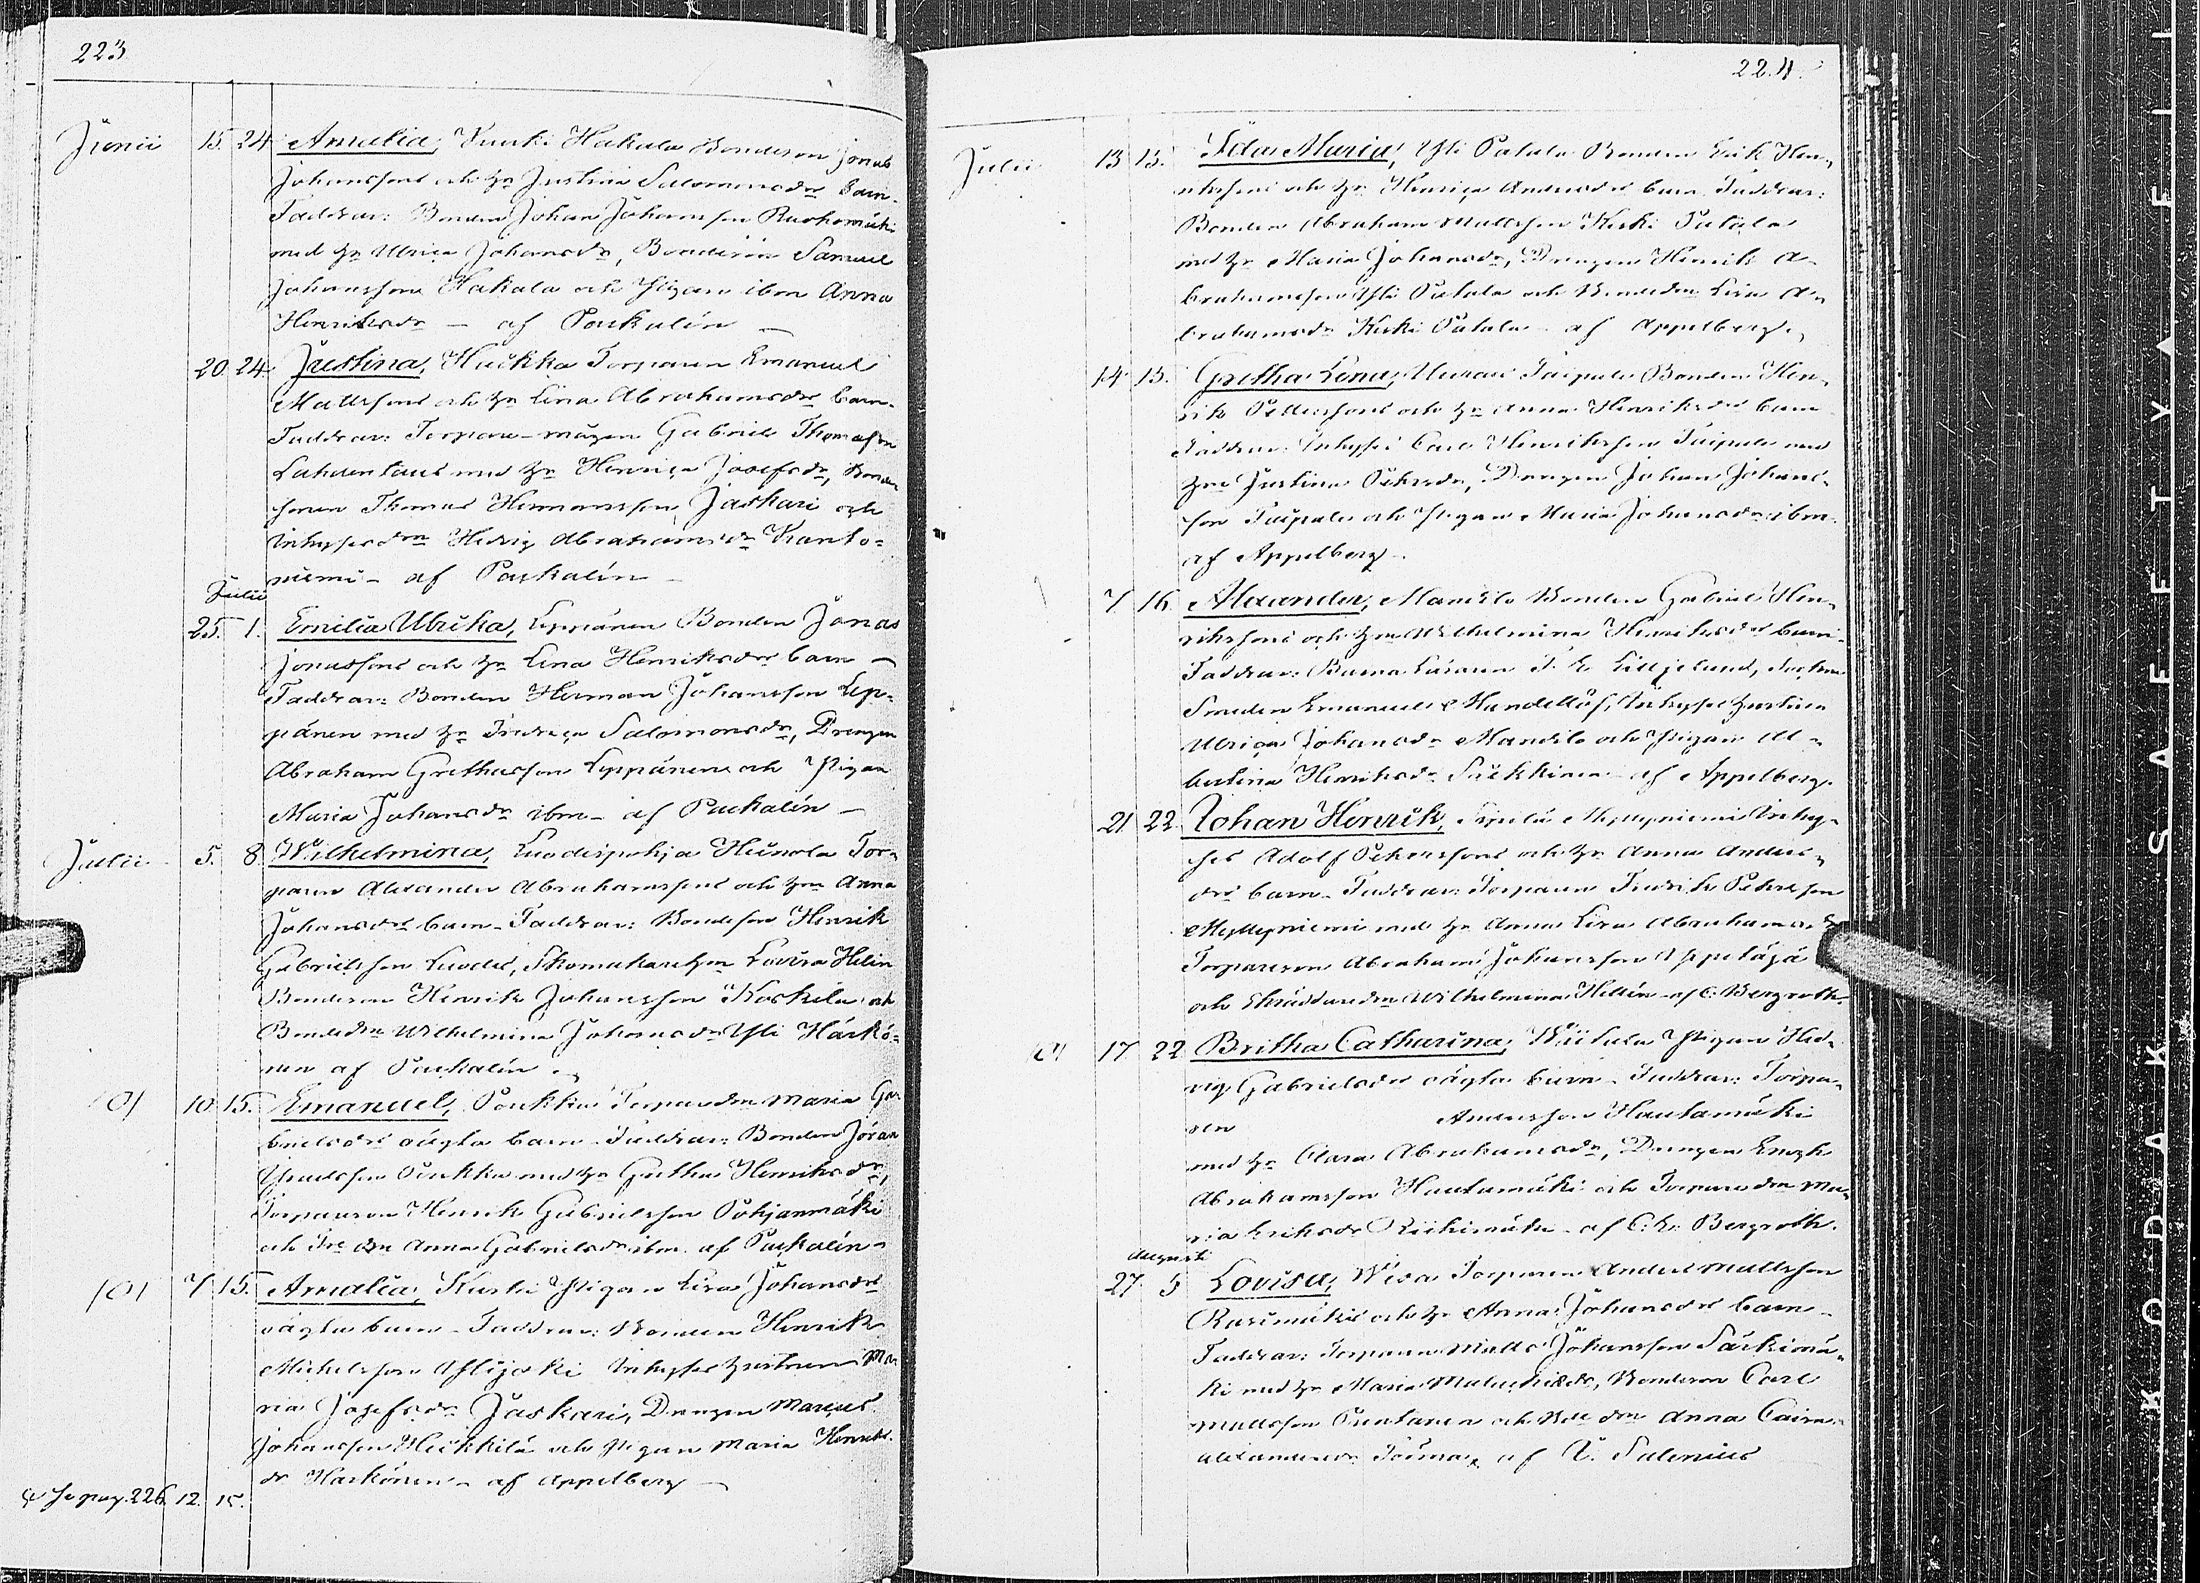 223
Junii 15. 24. Amalia, Kuurki Hakala Bondeson Jonas
Johanssons och h:u Justina Salomonsdrs barn.
Faddrar: Bonden Johan Johansson
med h:u Ulrica Johansdr, Bondesön Samuel
Johansson Hakala och Pigan ibm Anna
Henriksdr – af Paukalin –
20. 24. Justina, Torparen Emanuel
Mattssons och h:u Lina Abrahamsdrs barn.
Faddrar: Torpare-mågen Gabriel Thomasson
med h:u Henrica Josefsdr, Bonde
sonen Thomas Hermansson Jaskari och
Inhysesdrn Hedvig Abrahamsdr Kanto=
niemi – af Paukalin –
Julii
25. 1. Emilia Ulrika, Leppänen Bonden Jonas
Jonassons och h:u Lena Henriksdrs barn –
Faddrar: Bonden Herman Johansson Lep=
pänen med h:u Fredrica Salomonsdr, Drengen
Abraham Grethasson Leppänen och Pigan
Maria Johansdr ibm – af Paukalin –
Julii 5. 8. Wilhelmina, Heinola Tor=
paren Alexander Abrahamssons och h:u Anna
Johansdrs barn – Faddrar: Bondeson Henrik
Gabrielsson, Skomakareh:n Lovisa Helin
Bondeson Henrik Johansson Koskela och
Bondedrn Wilhelmina Johansdr Yli Härkö=
nen af Paukalin.
10. 15. Emanuel, Torparedrn Maria Ga
brielsdrs oägta barn – Faddrar: Bonden Jöran
med h:u Gretha Henriksdr,
Torpareson Henrik Gabrielsson Pohjanmäki
och drn Anna Gabrielsdr ibm. af Paukalin –
7. 15. Amalia, Pigan Lisa Johansdrs
oägta barn – Faddrar: Bonden Henrik
Michelsson Ylijoki Inhyses hustrun Ma
ria Josefsdr Jaskari, Drengen Marcus
Johansson Heikkilä och Pigan Maria Henriks
dr Härkönen – af Appelberg –
Se pag. 226. 12. 15.
224
Julii 13. 15. Ida Maria, Yli Patala Bonden Erik Hen=
rikssons och h:u Henrica Andersdrs barn. Faddrar:
Bonden Abraham Mattsson Keski Patala
med h:u Maria Johansdr, Drengen Henrik A=
brahamsson Yli Patala och Bondedrn Lisa A=
brahamsdr Keski Patala – af Appelberg.
14. 15. Gretha Lena, Taipale Bonden Hen=
rik Petterssons och h:u Anna Henriksdrs barn
Faddrar: Inhyses Carl Henriksson Taipale med
h:u Justina, Drengen Johan Johans=
son Taipale och Pigan Maria Johansdr ibm.
af Appelberg.
7. 16. Alexander, Mandilo Bonden Gabriel Hen=
rikssons och h:u Wilhelmina Henriksdrs barn.
Faddrar: Barna Läraren Liljelund, Socken
Smeden Emanuel, Inhyses hustrun
Ulrica Johansdr Mandilo och Pigan Al=
bertina Henriksdr – af Appelberg.
21. 22. Johan Henrik, Myllyniemi Inhy=
ses Adolf och h:u Anna Anders=
drs barn. Faddrar: Torparen Fredrik Pehrsson
Myllyniemi med h:u Anna Lisa Abrahamsdr
Torpareson Abraham Johansson
och Wilhelmina Hellén – af C. Bergroth
17. 22. Britha Catharina, Pigan Hed=
vig Gabrielsdrs oägta barn – Faddrar: Torpa=
ren Andersson Hautamäki
med h:u Clara Abrahamsdr, Drengen
Abrahamsson Hautamäki och Torparedrn Ma=
ria Eriksdr – af C. Bergroth.
Augusti
27. 5. Lovisa, Torparen Anders Mattsson
och h:u Anna Johansdrs barn –
Faddrar: Torparen Matts Johansson Särkimä=
ki med h:u Maria, Bondeson Carl
Mattsson och drn Anna Caisa
Alexandersdr af Salenius